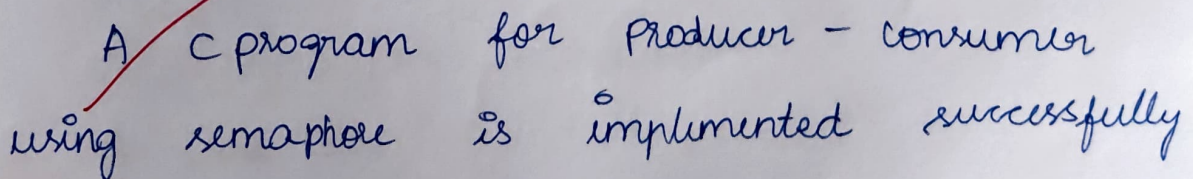 A C program for producer - consumer
using semaphore is implemented successfully